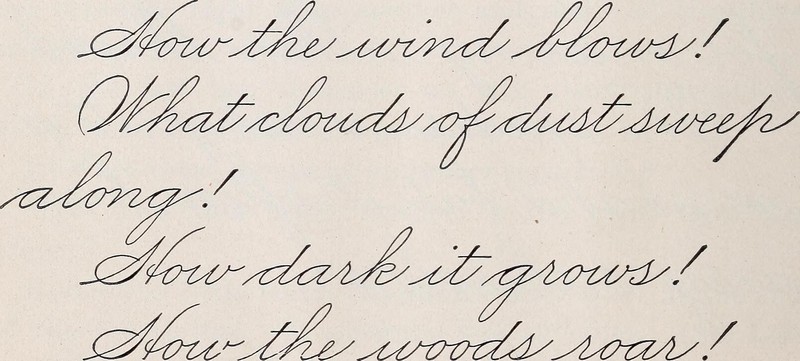 How the wind blows!
What clouds of dust sweep
along!
How dark it grows!
How the woods roar!